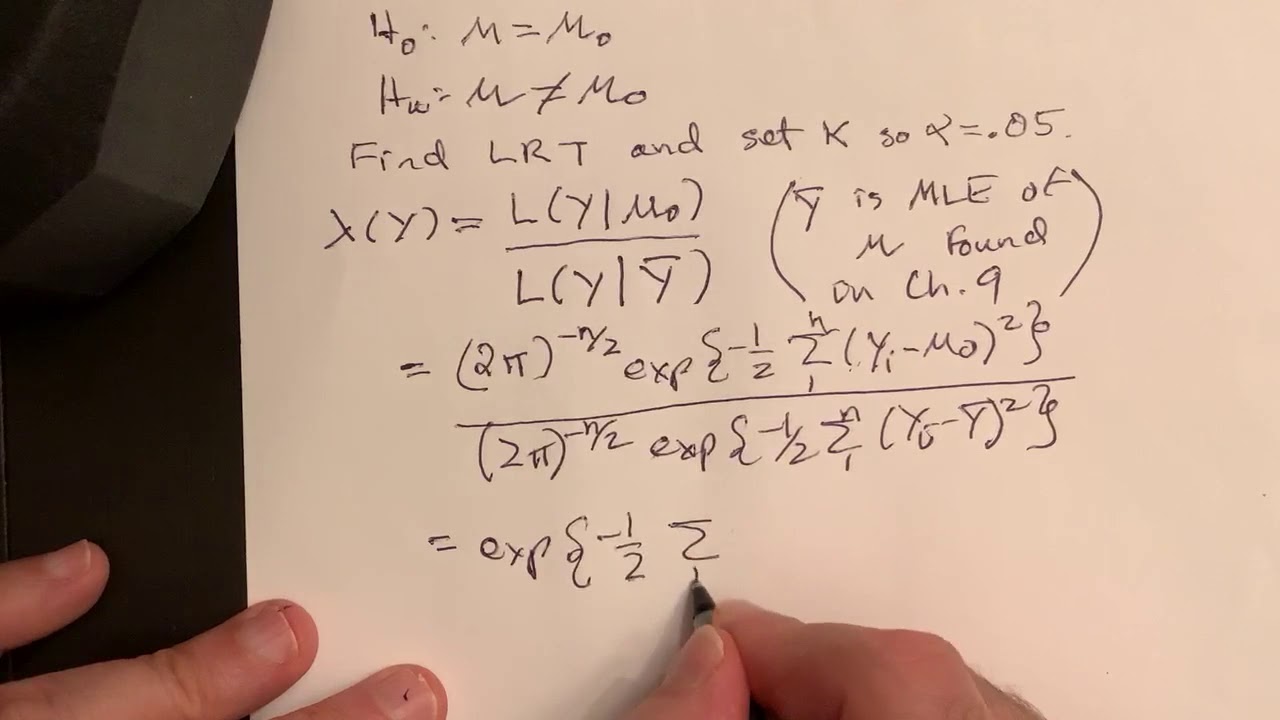 H₀: μ = μ₀
Hₐ: μ ≠ μ₀
Find LRT and set K so α = .05.
λ(Y) = L(Y|μ₀) / L(Y|Ȳ)
(Ȳ is MLE of
μ found
on Ch. 9)
= (2π)^{-n/2} exp{-1/2 Σ₁ⁿ (Yᵢ - μ₀)²}
/ (2π)^{-n/2} exp{-1/2 Σ₁ⁿ (Yᵢ - Ȳ)²}
= exp{-1/2 Σ₁